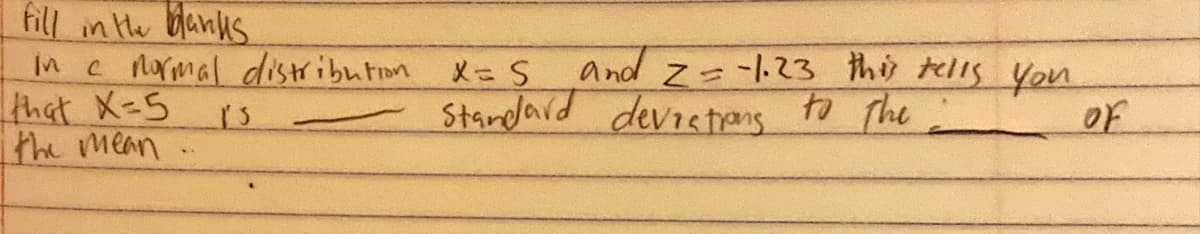 Fill in the blanks
In a normal distribution x = 5 and z = -1.23 this tells you
that x=5 is ___ standard deviations to the ___ of
the mean ..